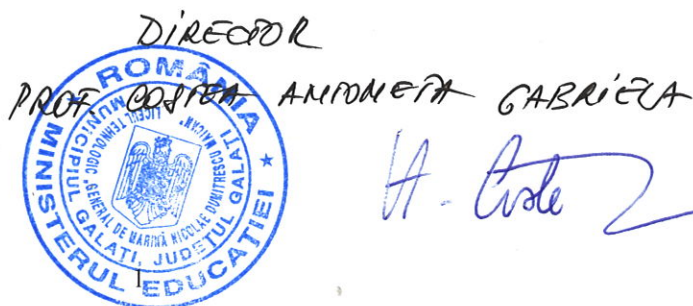 DIRECTOR
PROF. COSTEA ANTONETA GABRIELA
ROMÂNIA
MINISTERUL EDUCAȚIEI
MUNICIPIUL GALAȚI, JUDEȚUL GALAȚI
LICEUL TEHNOLOGIC „GENERAL DE MARINĂ NICOLAE DUMITRESCU MAICAN"
A. Coste
1